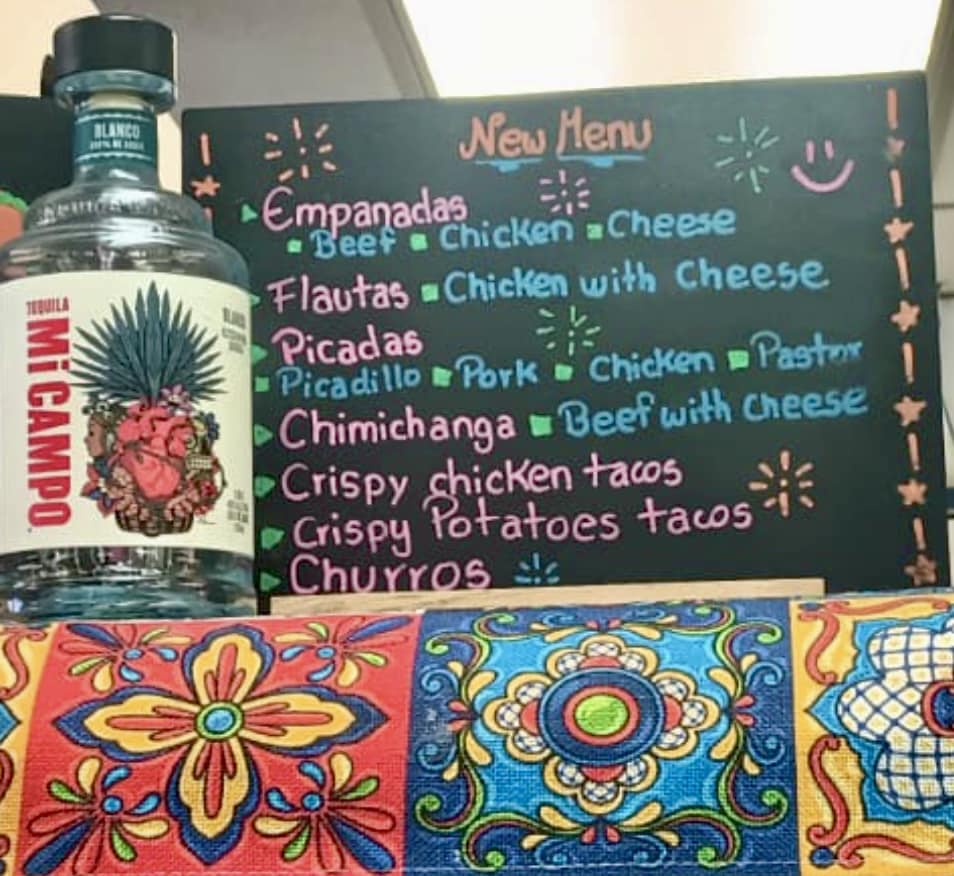 BLANCO
100% DE AGAVE
TEQUILA
Mi CAMPO
BLANCO
New Menu
Empanadas
Beef Chicken Cheese
Flautas Chicken with Cheese
Picadas
Picadillo Pork Chicken Pastor
Chimichanga Beef with Cheese
Crispy chicken tacos
Crispy Potatoes tacos
Churros